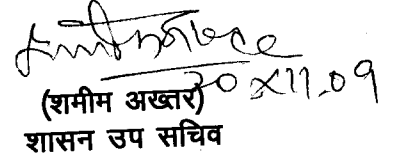 30 XII.09
(शमीम अख्तर)
शासन उप सचिव